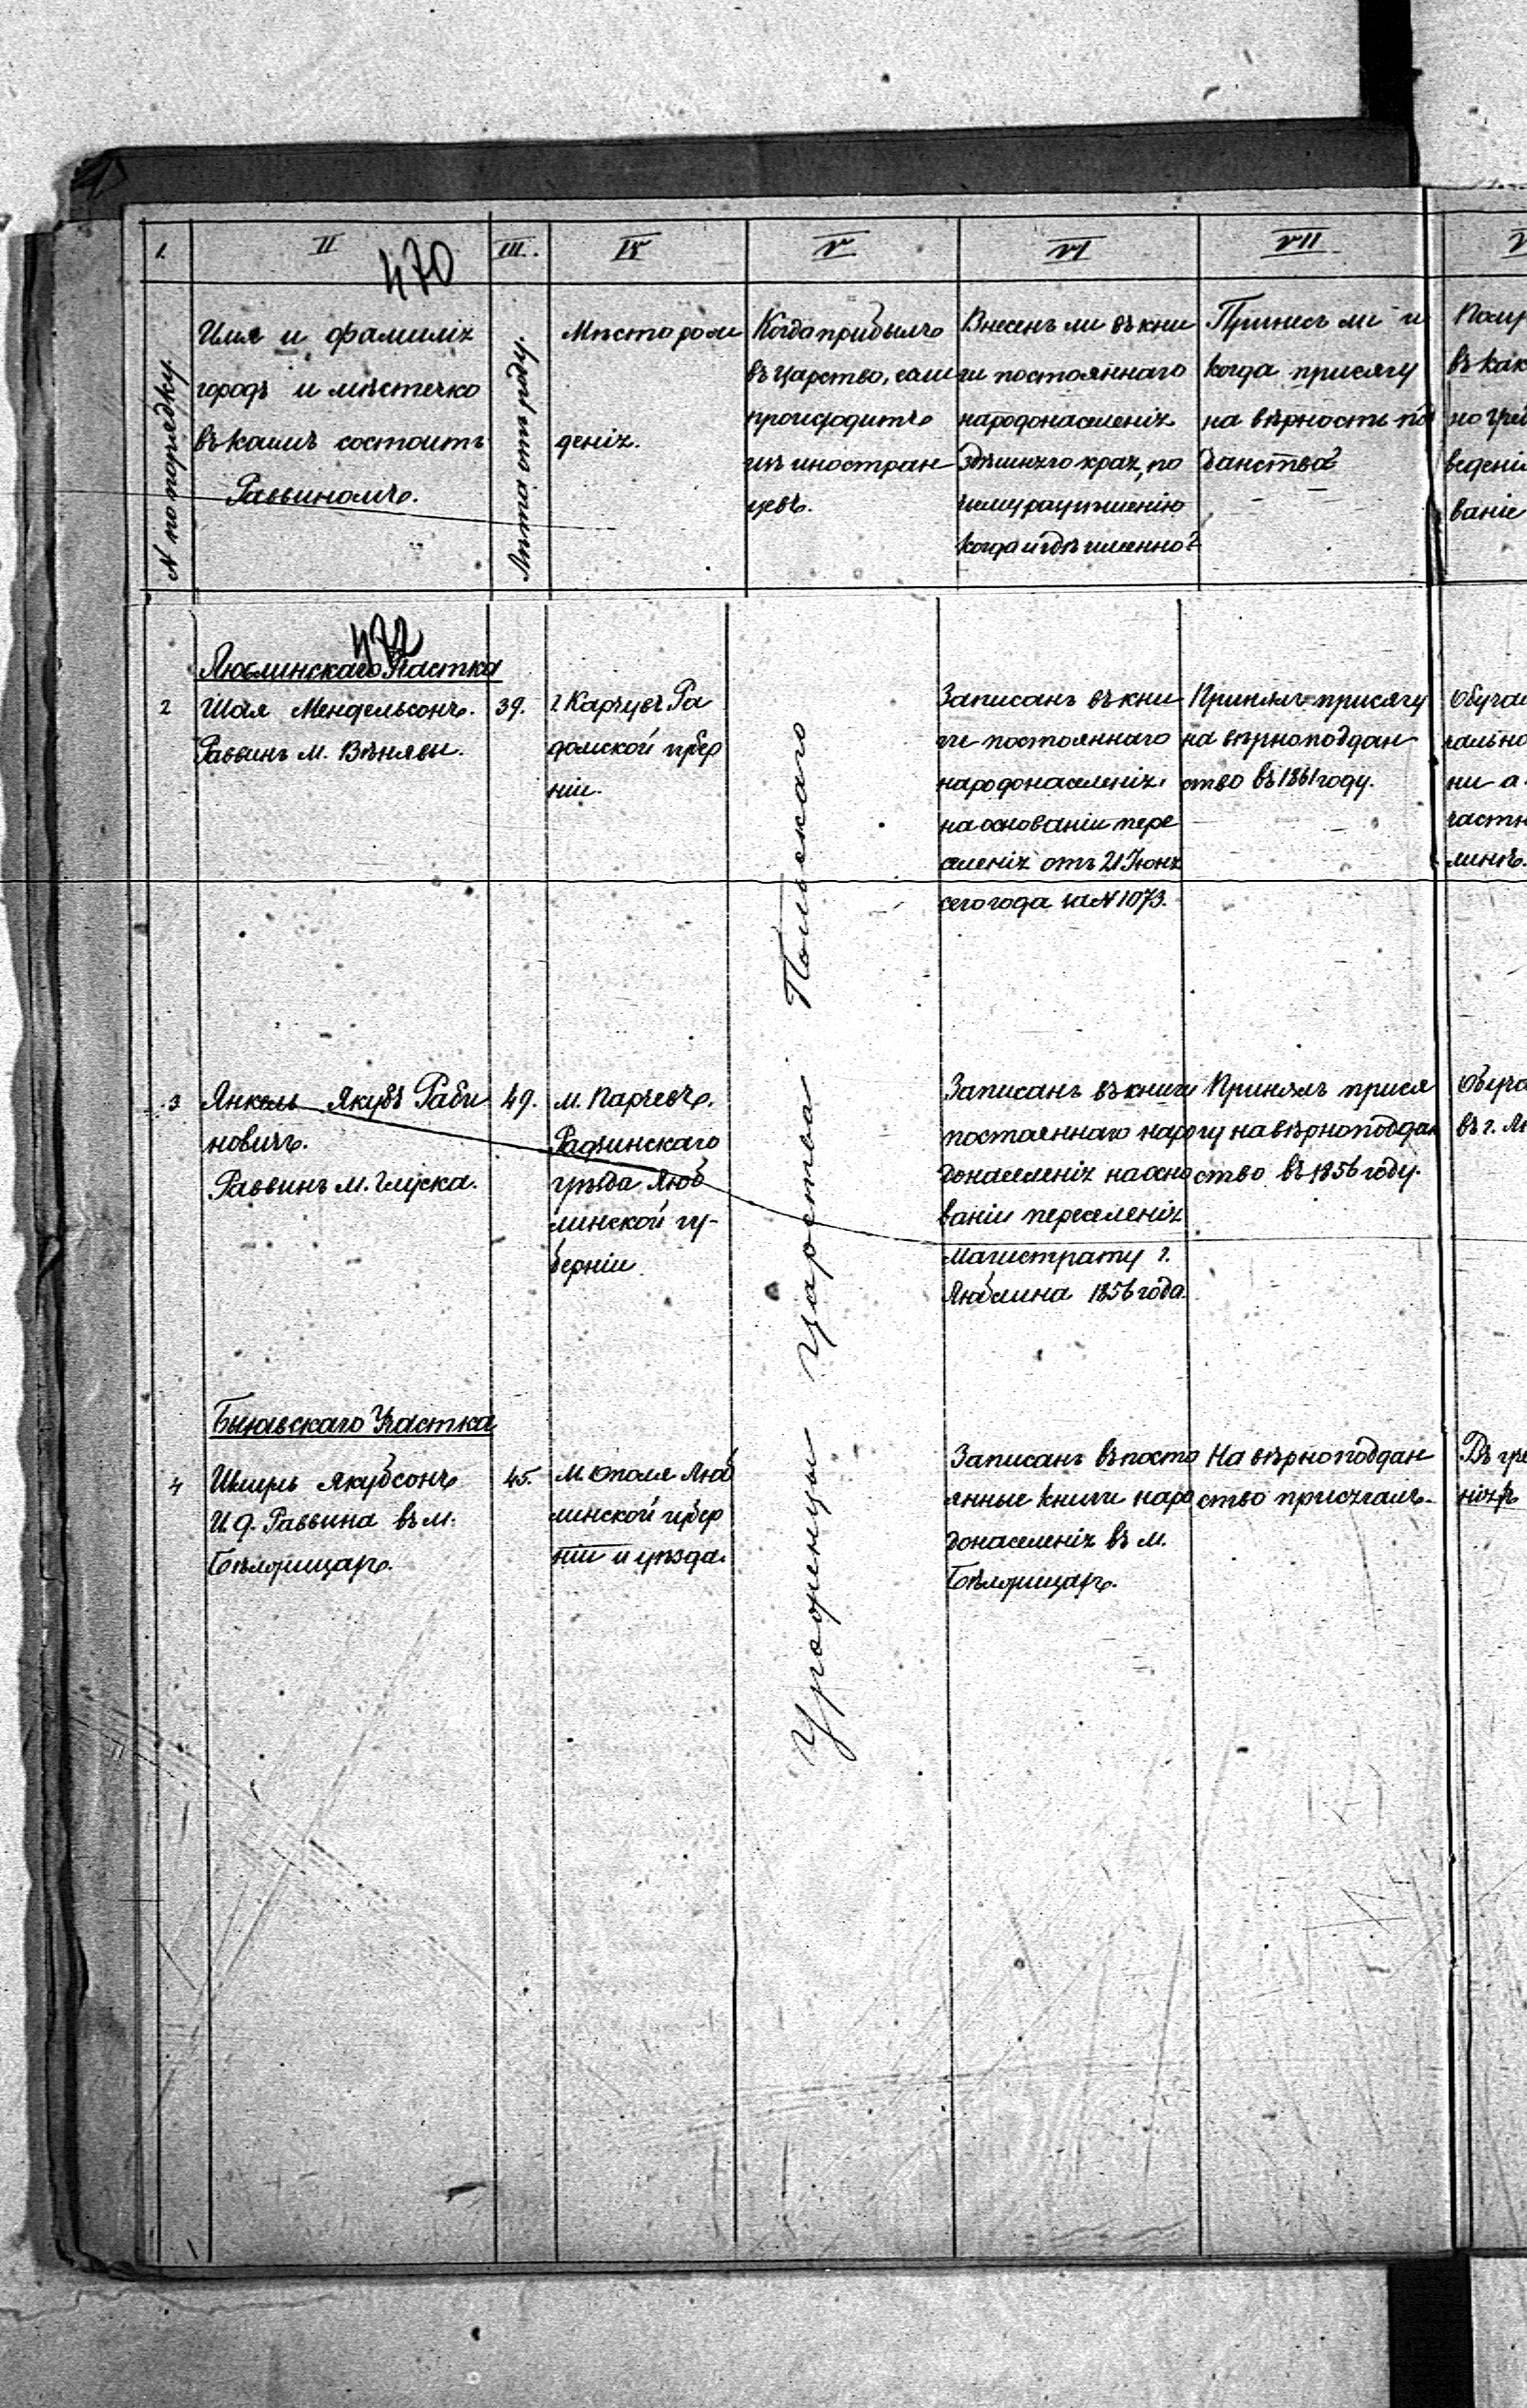 I.
II
III.
IV
V
VI
VII
470
N по порядку.
Имя и фамилія
городъ и мѣстечко
въ коимъ состоитъ
Раввиномъ.
Мѣсто рож
деніз.
Когда прибылъ
въ Царство, если
происходитъ
изъ иностран
цевъ.
Внесенъ ли въ кни
ги постояннаго
народонаселенія
здѣшняго края, по
чему
когда и гдѣ именно?
Принесъ ли и
когда присягу
на вѣрность под
данства?
въ как
ведені
ваніе
472
Люблинскаго Участка
2
Шая Мендельсонъ.
Раввинъ м. Вѣнявы.
39.
г. Карчувъ Ра
домской губер
ніи.
Записанъ въ кни
ги постояннаго
народонаселенія
на основаніи пере
селенія отъ 21 Іюня
сего года за N 1073.
Принялъ присягу
на вѣрноподдан
ство въ 1861 году.
Обучал
ни а
частн
3
Янкель Якубъ Раби
новичъ.
Раввинъ м. Глуска.
49.
м. Парчевъ.
Радзинскаго
уѣзда Люб
линской гу-
берніи
Записанъ въ книги
постояннаго наро
донаселенія на осно
ваніи переселенія
Магистрату г.
Люблина 1856 года.
Принялъ прися
гу на вѣрноподдан
ство въ 1856 году.
Обуча
въ г. Лю
Быхавскаго Участка
4
Шмуль Якубсонъ
И. д. Раввина въ м.
Бѣлжицахъ.
45.
м. Ополя Люб
линской губер
ніи и уѣзда.
Записанъ въ посто
янные книги наро
донаселенія въ м.
Бѣлжицахъ.
На вѣрноподдан
ство присягалъ.
Уроженцы Царства Польскаго